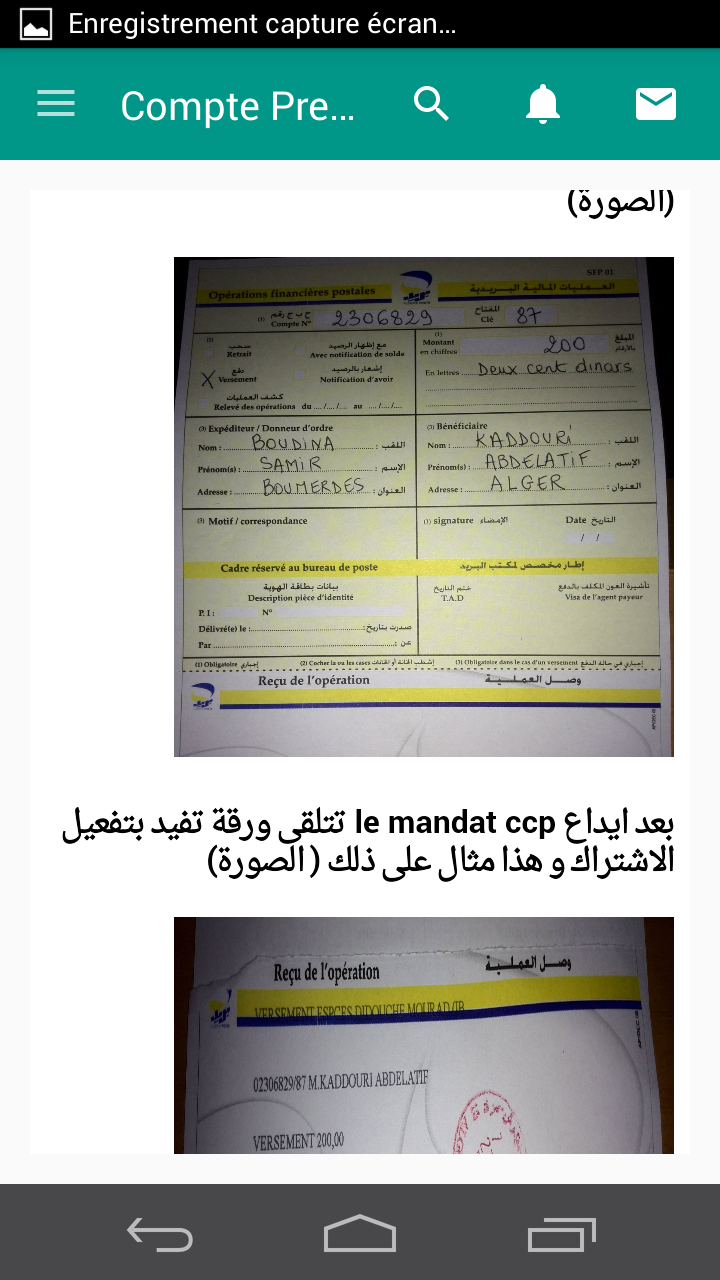 Enregistrement capture écran...
Compte Pre...
(الصورة)
SFP 01
Opérations financières postales
العمليات المالية البريدية
ح ب ج رقم
(1) Compte N° 2306829
المفتاح
Clé 87
(2)
سحب
Retrait
مع إظهار الرصيد
Avec notification de solde
X دفع
Versement
إشعار بالرصيد
Notification d'avoir
كشف العمليات
Relevé des opérations du .../.../... au .../.../...
(1)
Montant
en chiffres
200
المبلغ
بالأرقام
En lettres Deux cent dinars
(3) Expéditeur / Donneur d'ordre
Nom : BOUDINA اللقب :
Prénom(s) : SAMIR الإسم :
Adresse : BOUMERDES العنوان :
(3) Bénéficiaire
Nom : KADDOURI اللقب :
Prénom(s) : ABDELATIF الإسم :
Adresse : ALGER العنوان :
(3) Motif / correspondance
(1) signature الإمضاء
Date التاريخ
/ /
Cadre réservé au bureau de poste
إطار مخصص لمكتب البريد
بيانات بطاقة الهوية
Description pièce d'identité
P. I : N°
Délivré(e) le : صدرت بتاريخ :
Par عن :
ختم التاريخ
T.A.D
تأشيرة العون المكلف بالدفع
Visa de l'agent payeur
(1) Obligatoire إجباري
(2) Cocher la ou les cases أشطب الخانة أو الخانات
(3) Obligatoire dans le cas d'un versement إجباري في حالة الدفع
Reçu de l'opération
وصل العملية
بعد ايداع le mandat ccp تتلقى ورقة تفيد بتفعيل
الاشتراك و هذا مثال على ذلك ( الصورة)
Reçu de l'opération
وصل العملية
VERSEMENT ESPCES DIDOUCHE MOURAD (IB
02306829/87 M.KADDOURI ABDELATIF
VERSEMENT 200,00